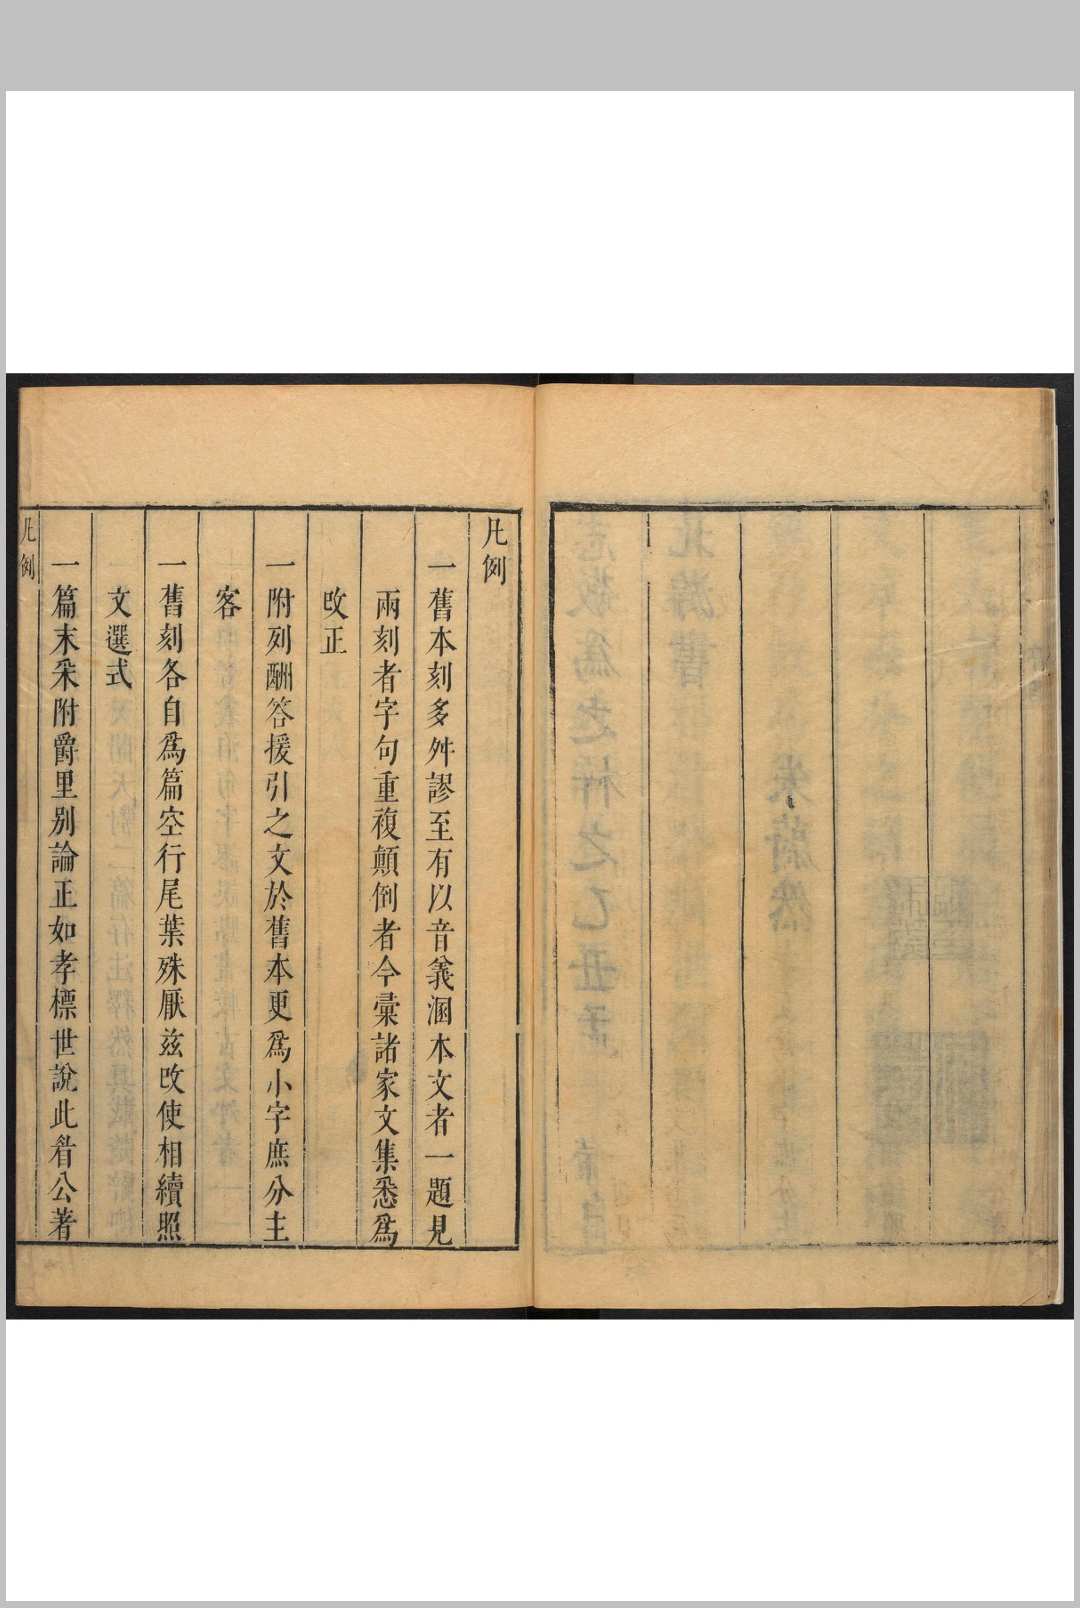 凡例
一舊本刻多舛謬至有以音義溷本文者一題見
兩刻者字句重複顛倒者今彙諸家文集悉爲
改正
一附列酬答援引之文於舊本更爲小字庶分主
客
一舊刻各自爲篇空行尾葉殊厭茲改使相續照
文選式
一篇末采附爵里別論正如孝標世說此省公著
凡例